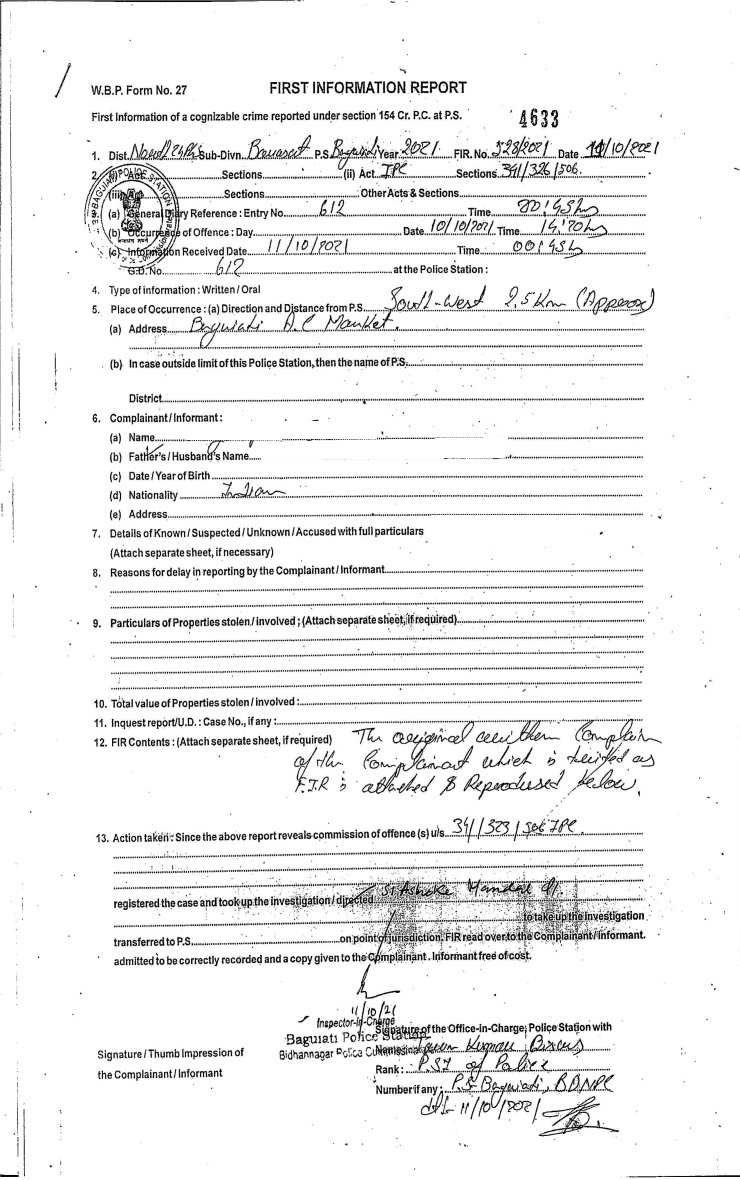 W.B.P. Form No. 27 FIRST INFORMATION REPORT
First Information of a cognizable crime reported under section 154 Cr. P.C. at P.S. 4633
1. Dist. Sub-Divn. Barasat P.S. Baguiati Year 2021. FIR. No. 528/2021 Date 11/10/2021
2. (i) Act Sections (ii) Act. IPC Sections 341/326/506.
(iii) Act Sections Other Acts & Sections
3. (a) General Diary Reference : Entry No. 612 Time 00:45 h
(b) Occurrence of Offence : Day Date 10/10/2021 Time
(c) Information Received Date 11/10/2021 Time 00:45h
G.D.No. 612 at the Police Station :
4. Type of information : Written / Oral
5. Place of Occurrence : (a) Direction and Distance from P.S. South-West 2.5 Km (Approx)
(a) Address Baguiati A.C Market.
(b) In case outside limit of this Police Station, then the name of P.S.
District
6. Complainant / Informant :
(a) Name
(b) Father's / Husband's Name
(c) Date / Year of Birth
(d) Nationality Indian
(e) Address
7. Details of Known / Suspected / Unknown / Accused with full particulars
(Attach separate sheet, if necessary)
8. Reasons for delay in reporting by the Complainant / Informant
9. Particulars of Properties stolen / involved ; (Attach separate sheet, if required)
10. Total value of Properties stolen / involved :
11. Inquest report/U.D. : Case No., if any :
12. FIR Contents : (Attach separate sheet, if required) The original written Complain
of the Complainant which is treated as
F.I.R is attached & Reproduced below.
13. Action taken : Since the above report reveals commission of offence (s) u/s 341/323/506 IPC
registered the case and took up the investigation / directed SI Ashoke Mandal
to take up the investigation
transferred to P.S. on point of jurisdiction. FIR read over to the Complainant / Informant.
admitted to be correctly recorded and a copy given to the Complainant . Informant free of cost.
11/10/21
Inspector-In-Charge
Signature of the Office-in-Charge, Police Station with
Baguiati Police Station
Bidhannagar Police Name Kumar Biswas
Signature / Thumb Impression of
Rank : PSI of Police
the Complainant / Informant
Number if any : P.S Baguiati, BDNPC
dt- 11/10/2021